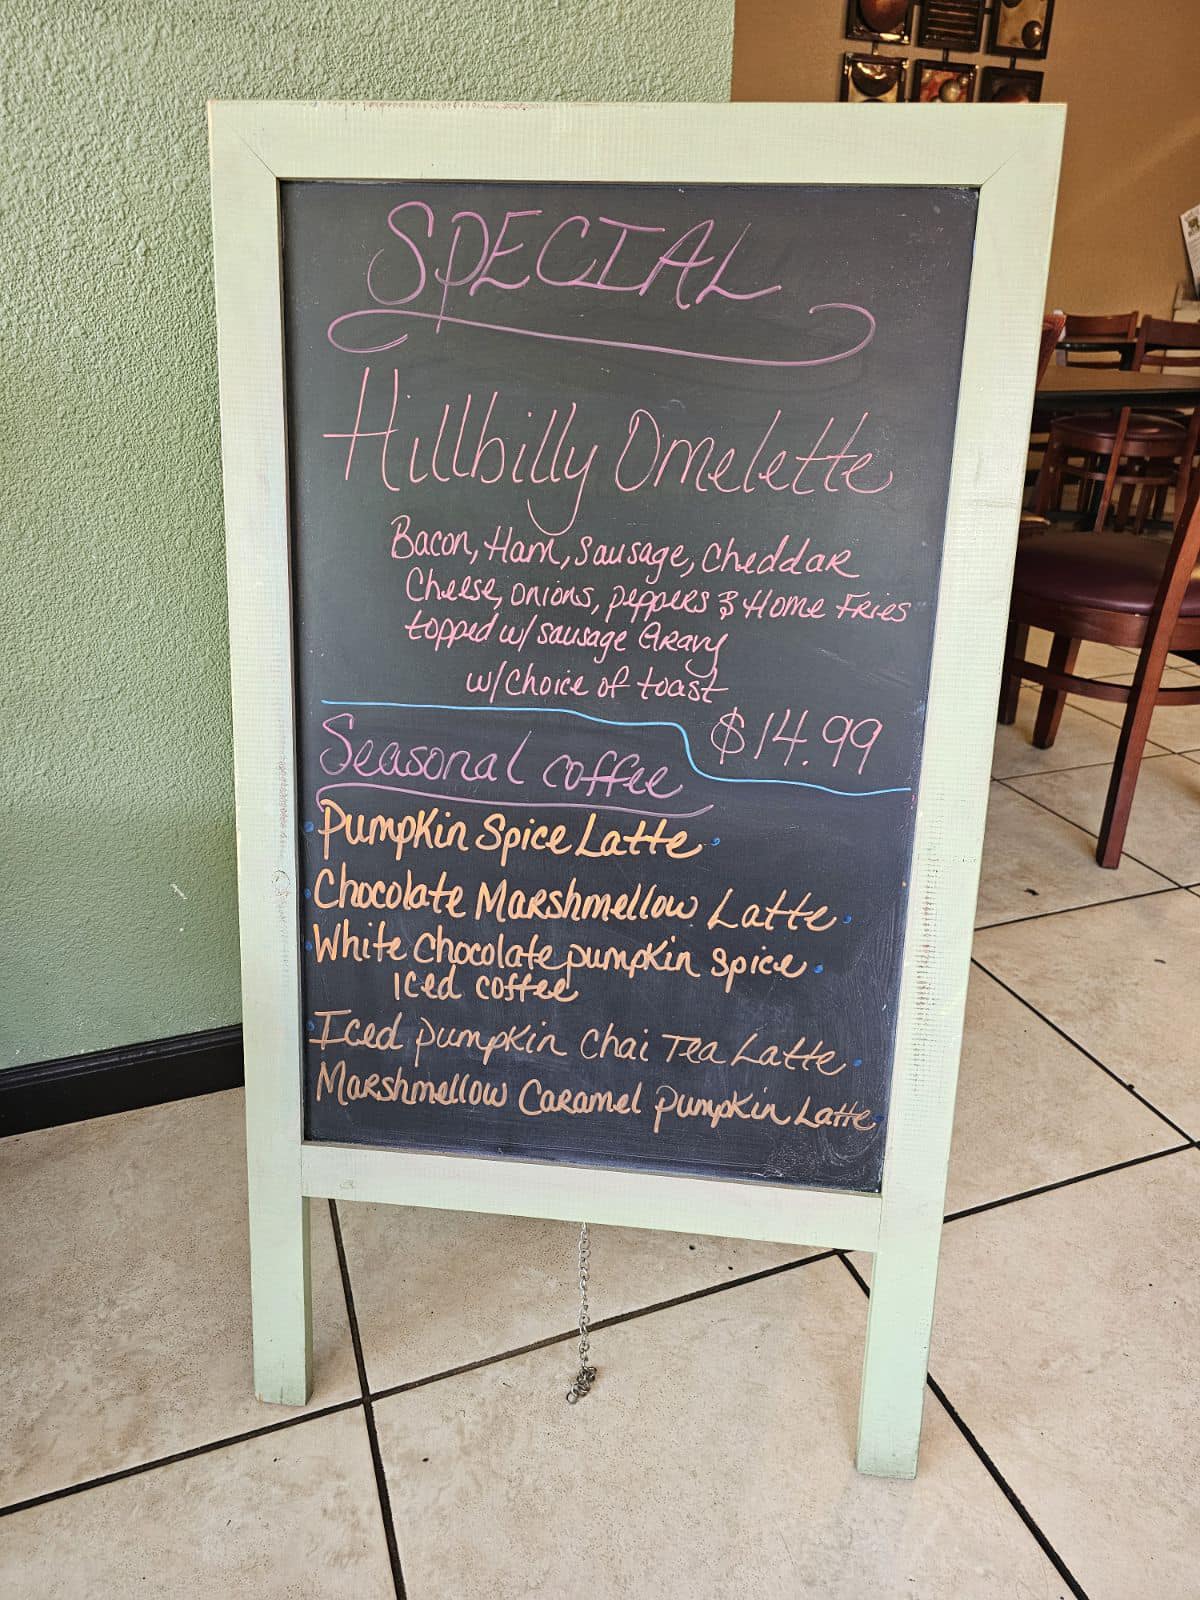 SPECIAL
Hillbilly Omelette
Bacon, Ham, Sausage, Cheddar
Cheese, onions, peppers & Home Fries
topped w/ sausage Gravy
w/ choice of toast
$14.99
Seasonal coffee
Pumpkin Spice Latte
Chocolate Marshmellow Latte
White Chocolate pumpkin spice
Iced coffee
Iced pumpkin Chai Tea Latte
Marshmellow Caramel pumpkin Latte